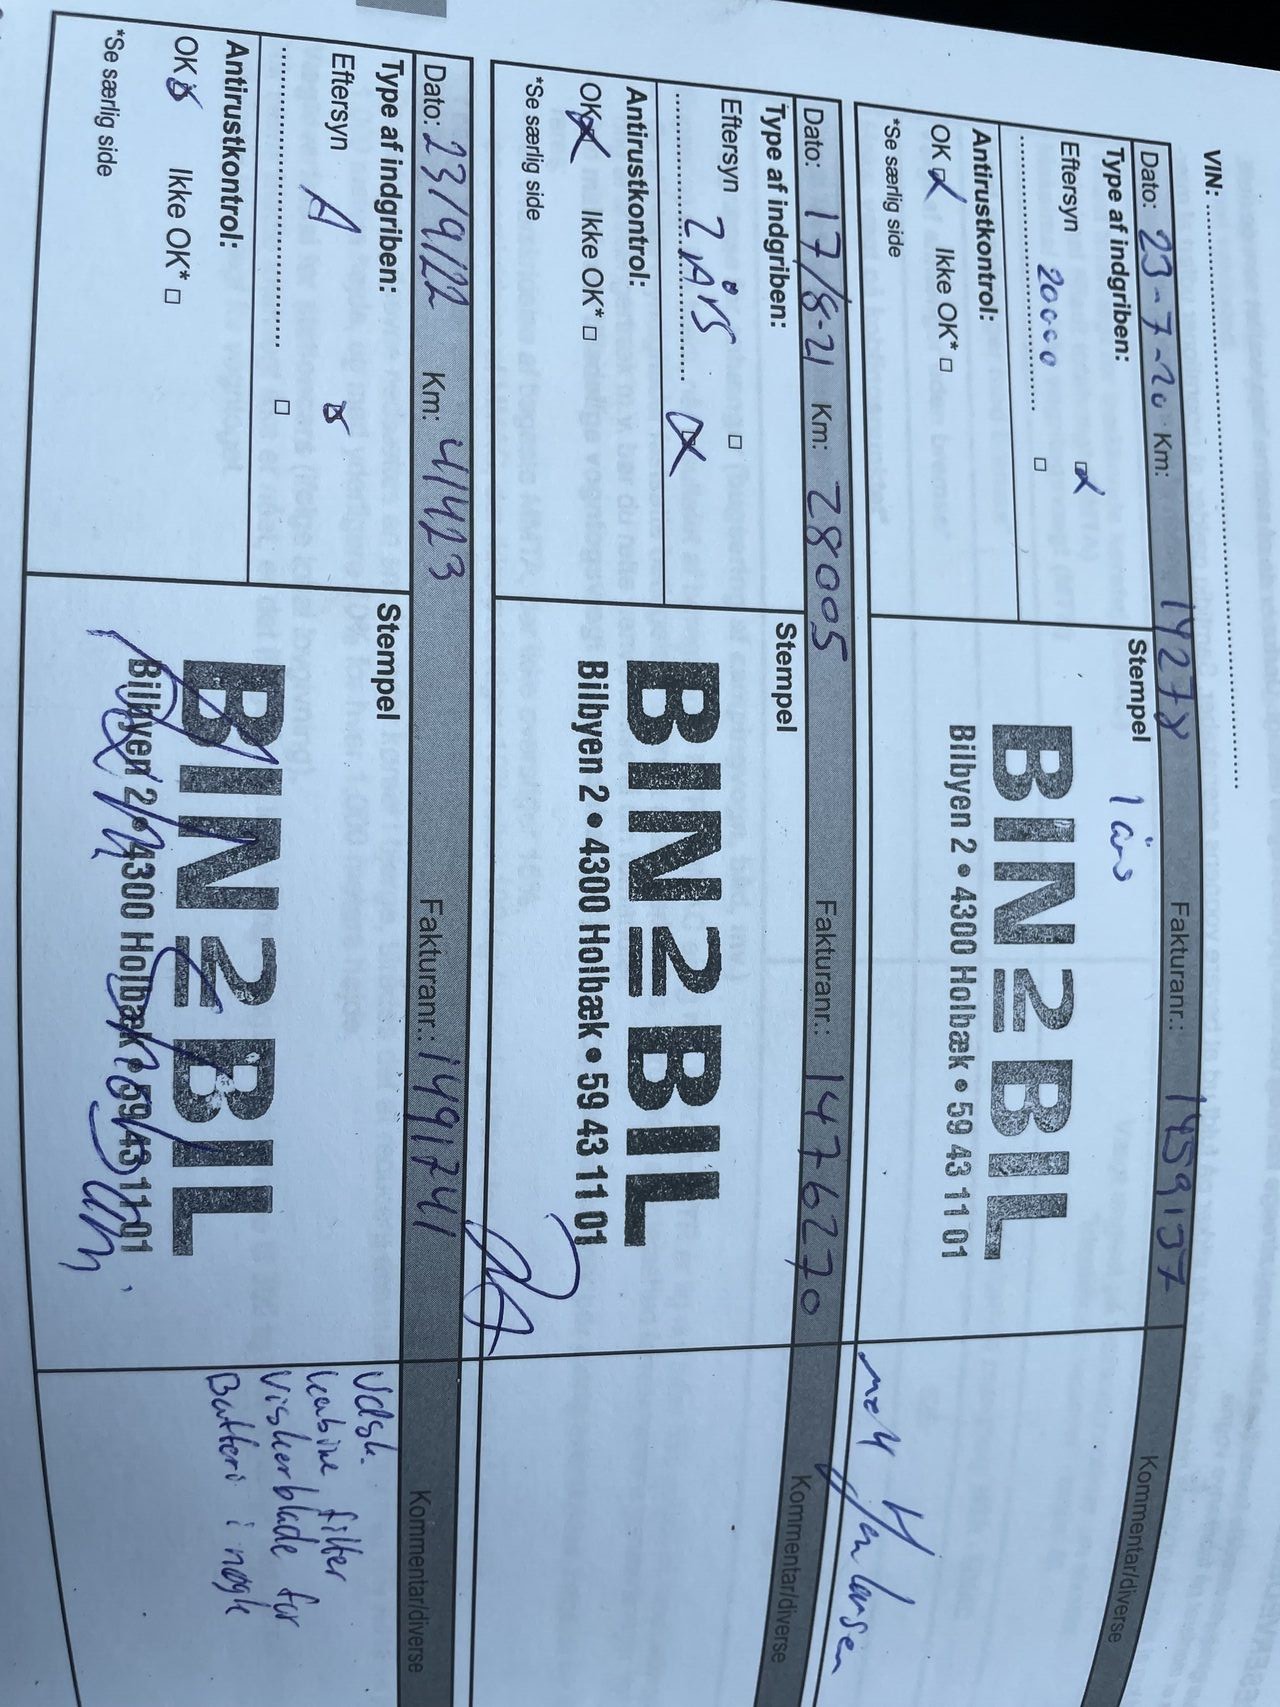 VIN:
Dato: 23-7-20 Km: 14278 Fakturanr.: 1459137 Kommentar/diverse
Type af indgriben:
Stempel 1 års
Eftersyn
20000
Antirustkontrol:
OK Ikke OK*
*Se særlig side
BIN2BIL
Bilbyen 2 • 4300 Holbæk • 59 43 11 01
Dato: 17/8-21 Km: 28005 Fakturanr.: 1476270 Kommentar/diverse
Type af indgriben:
Stempel
Eftersyn
2 Års
Antirustkontrol:
OK Ikke OK*
*Se særlig side
BIN2BIL
Bilbyen 2 • 4300 Holbæk • 59 43 11 01
Dato: 23/9/22 Km: 41423 Fakturanr.: 1491741 Kommentar/diverse
Type af indgriben:
Stempel
Eftersyn A
Antirustkontrol:
OK Ikke OK*
*Se særlig side
BIN2BIL
Bilbyen 2 • 4300 Holbæk • 59 43 11 01
Udsk.
kabine filter
Viskerblade for
Batteri i nøgle